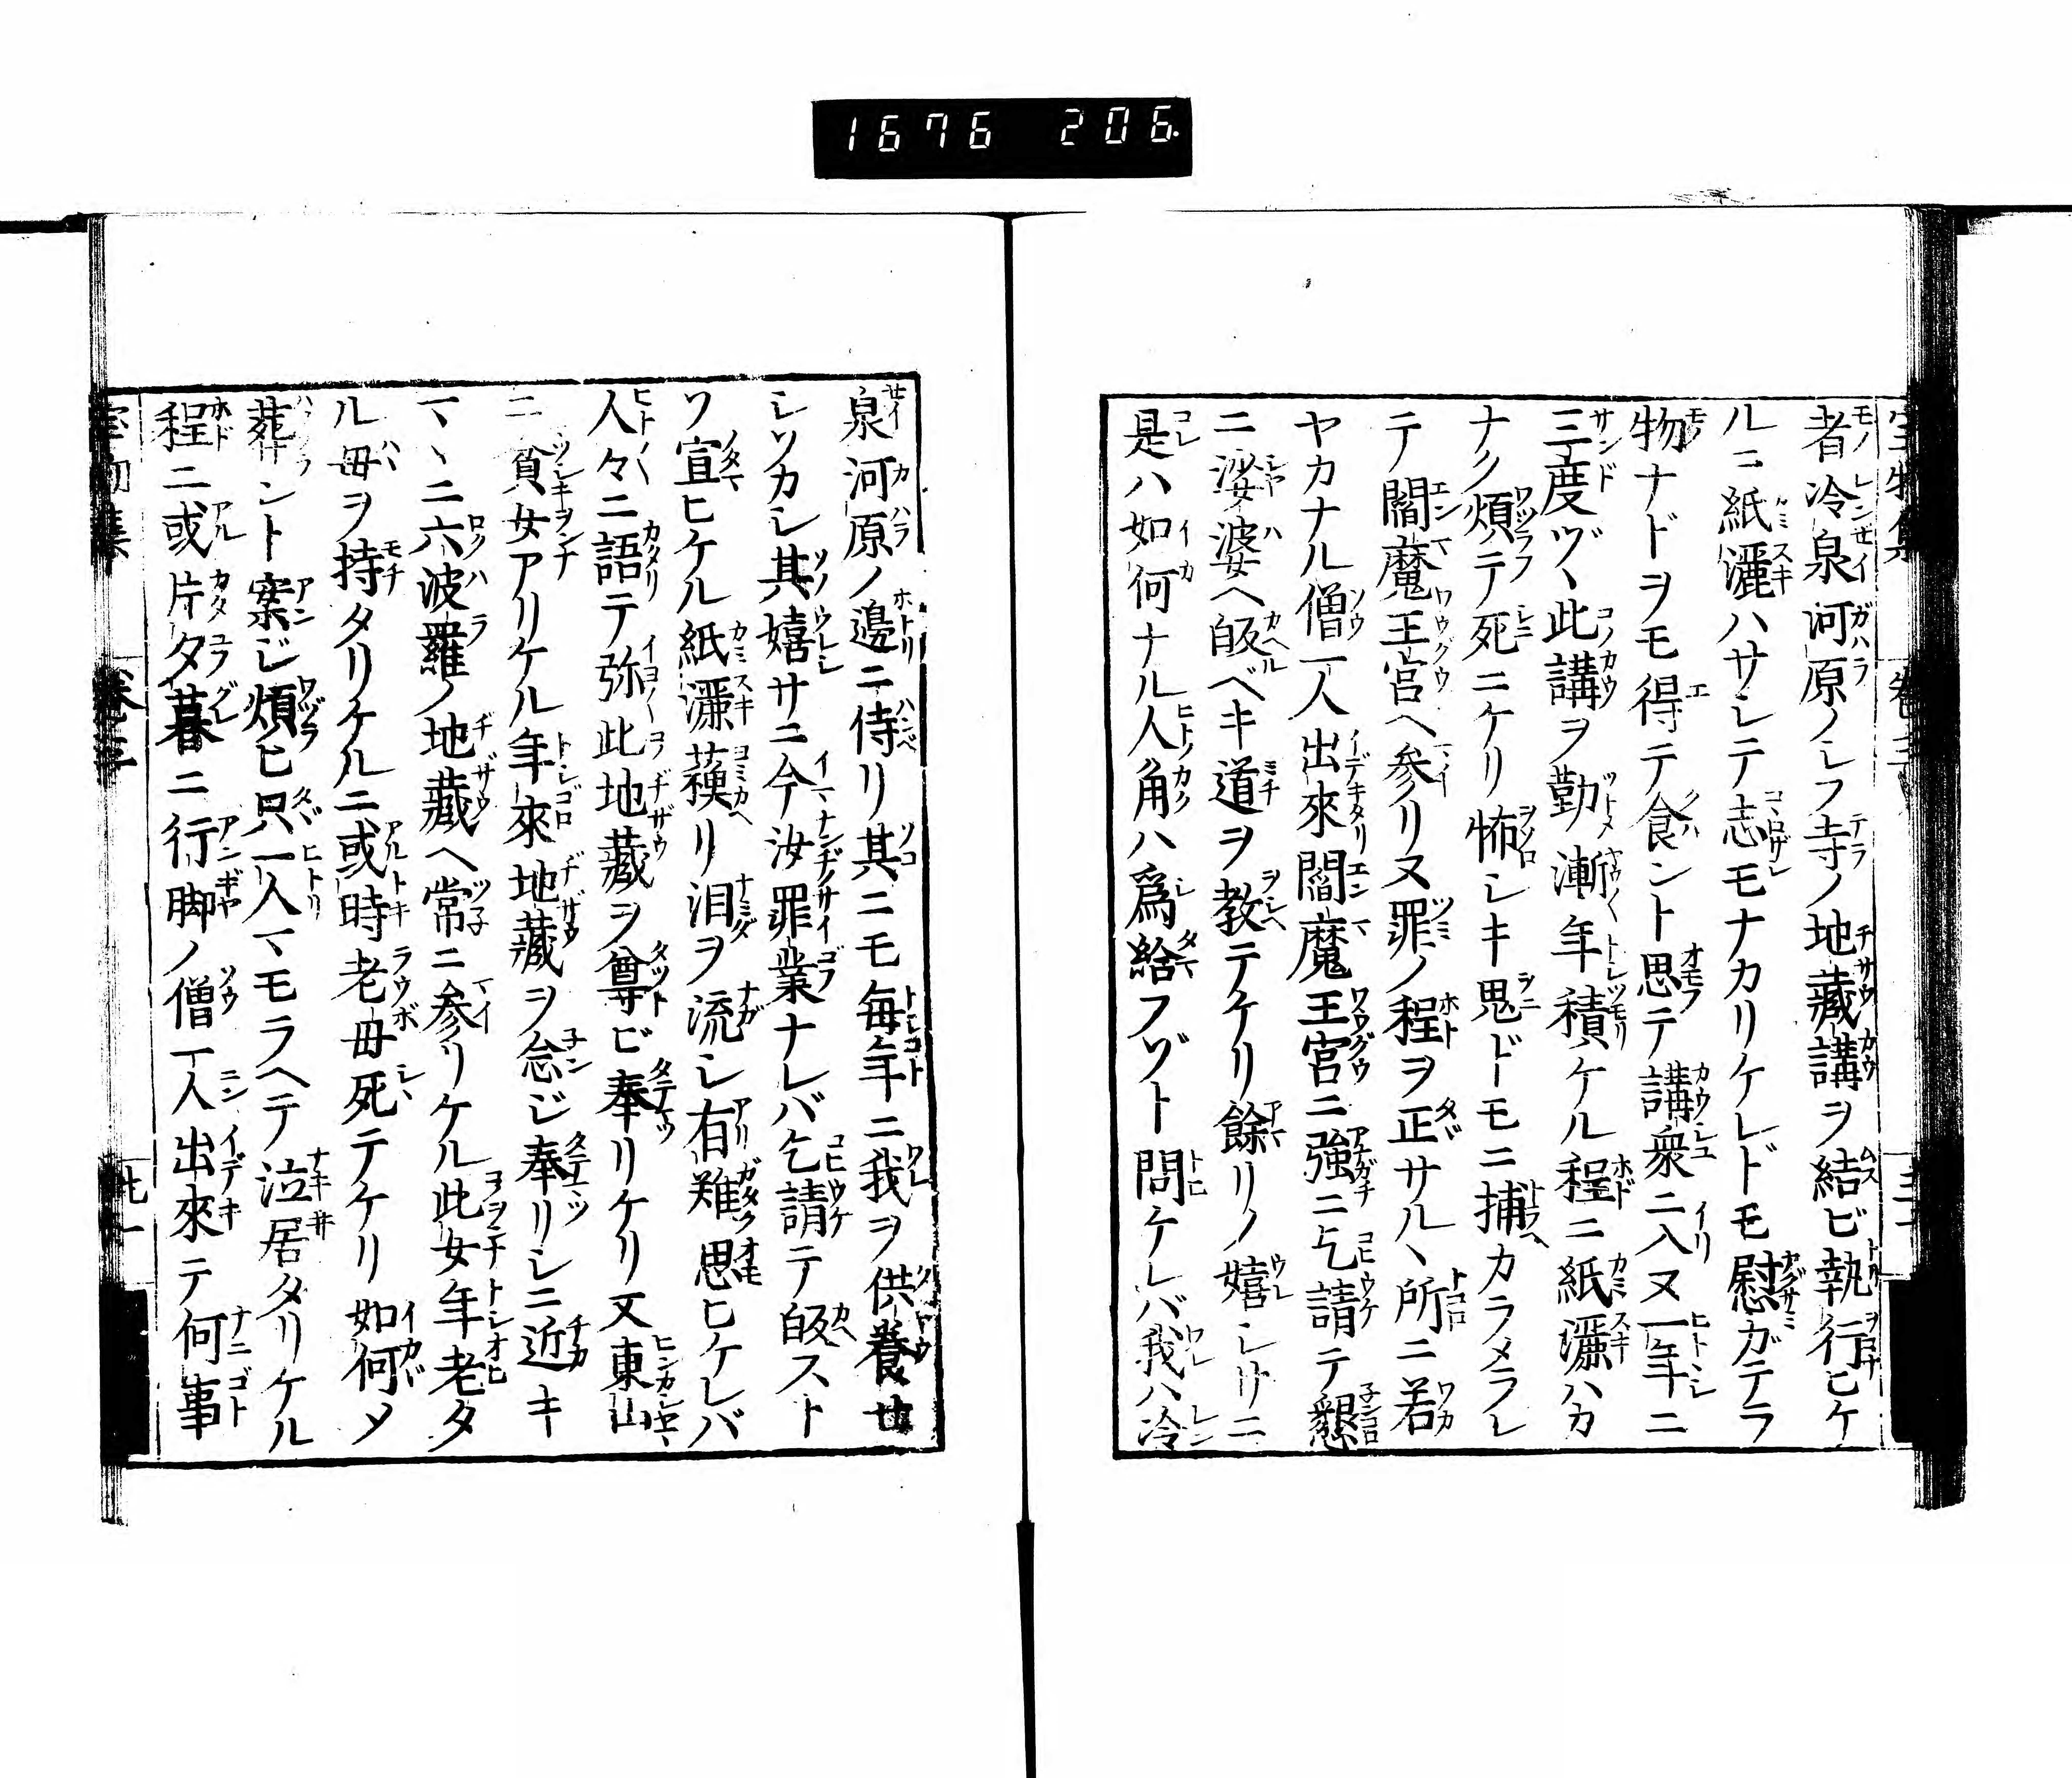 1676 206
者冷泉河原ノレフ寺ノ地藏講ヲ結ビ執行ヒケ
ルニ紙灑ハサレテ志モナカリケレドモ慰ガテラ
物ナドヲモ得テ食ント思テ講衆ニ入ヌ一年ニ
三度ヅヽ此講ヲ勤漸年積ケル程ニ紙灑ハカ
ナク煩テ死ニケリ怖シキ鬼ドモニ捕カラメラレ
テ閻魔王宮ヘ参リヌ罪ノ程ヲ正サルヽ所ニ若
ヤカナル僧一人出來閻魔王宮ニ強ニ乞請テ懇
ニ娑婆ヘ皈ベキ道ヲ教テケリ餘リノ嬉シサニ
是ハ如何ナル人角ハ爲給フゾト問ケレバ我ハ冷
泉河原ノ邊ニ侍リ其ニモ毎年ニ我ヲ供養セ
シソカシ其嬉サニ今汝罪業ナレバ乞請テ皈スト
ソ宣ヒケル紙灑蘓リ泪ヲ流シ有難思ヒケレバ
人々ニ語テ弥此地藏ヲ尊ビ奉リケリ又東山
ニ貧女アリケル年來地藏ヲ念ジ奉リシニ近キ
マヽニ六波羅ノ地藏ヘ常ニ参リケル此女年老タ
ル母ヲ持タリケルニ或時老母死テケリ如何メ
葬ント案ジ煩ヒ只一人マモラヘテ泣居タリケル
程ニ或片夕暮ニ行脚ノ僧一人出來テ何事
宝物集 卷三 廿一